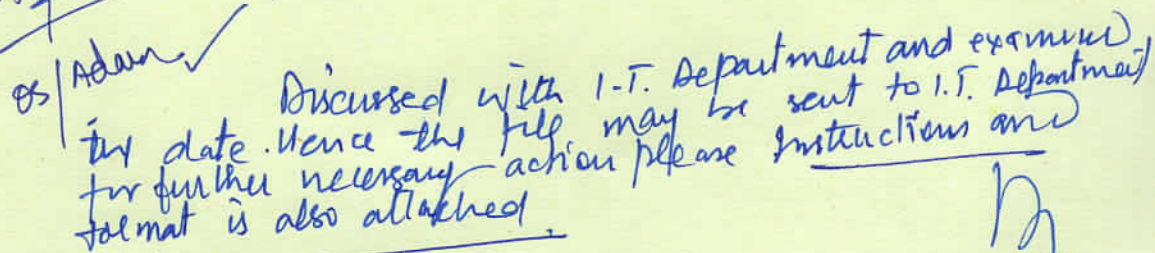 OS/Admn
Discussed with I.T. Department and examined
the date. Hence the file may be sent to I.T. Department
for further necessary action please Instructions and
format is also attached.